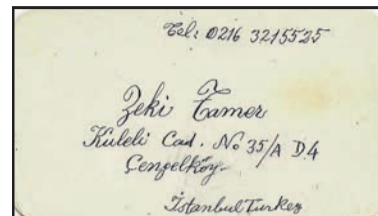 Tel: 0216 3215525
Zeki Tamer
Kuleli Cad. No 35/A D.4
Çengelköy
İstanbul Turkey